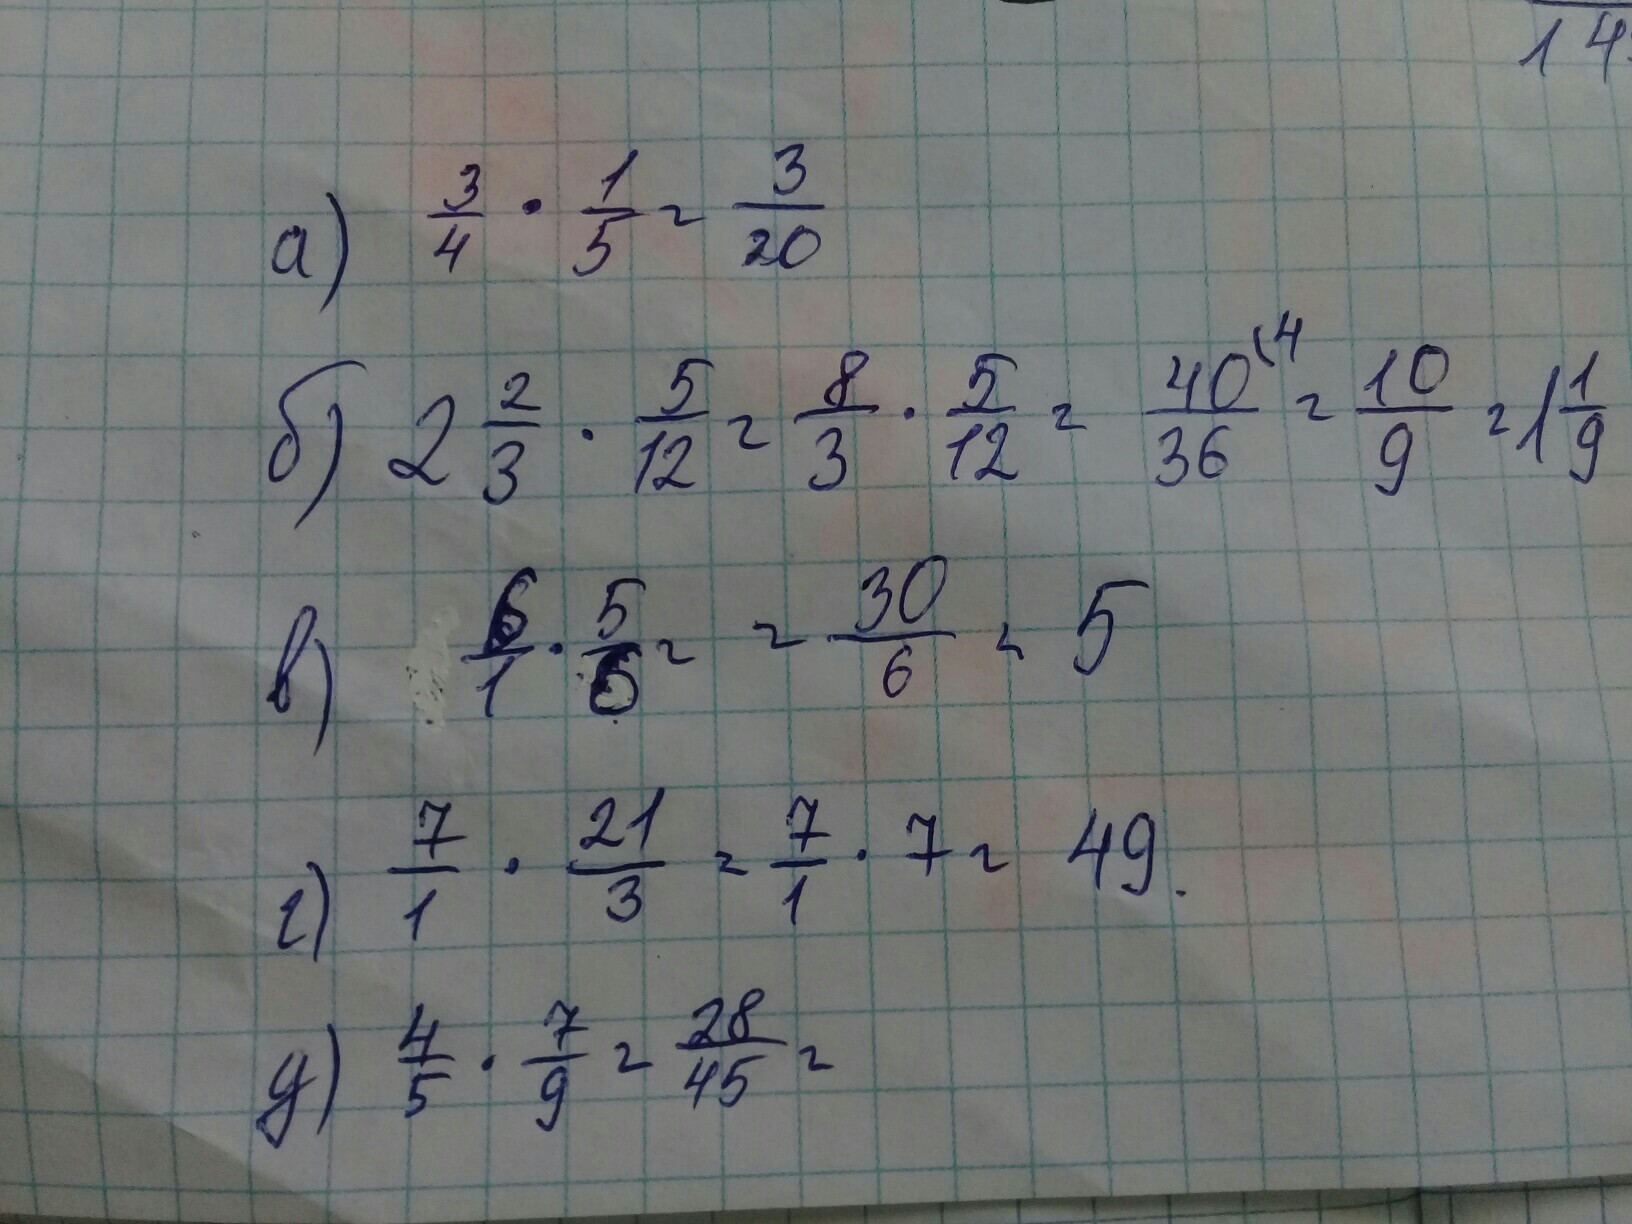 14
а) 3/4 · 1/5 = 3/20
б) 2 2/3 · 5/12 = 8/3 · 5/12 = 40/36 (4 = 10/9 = 1 1/9
в) 6/1 · 5/6 = = 30/6 = 5
г) 7/1 · 21/3 = 7/1 · 7 = 49.
д) 4/5 · 7/9 = 28/45 =